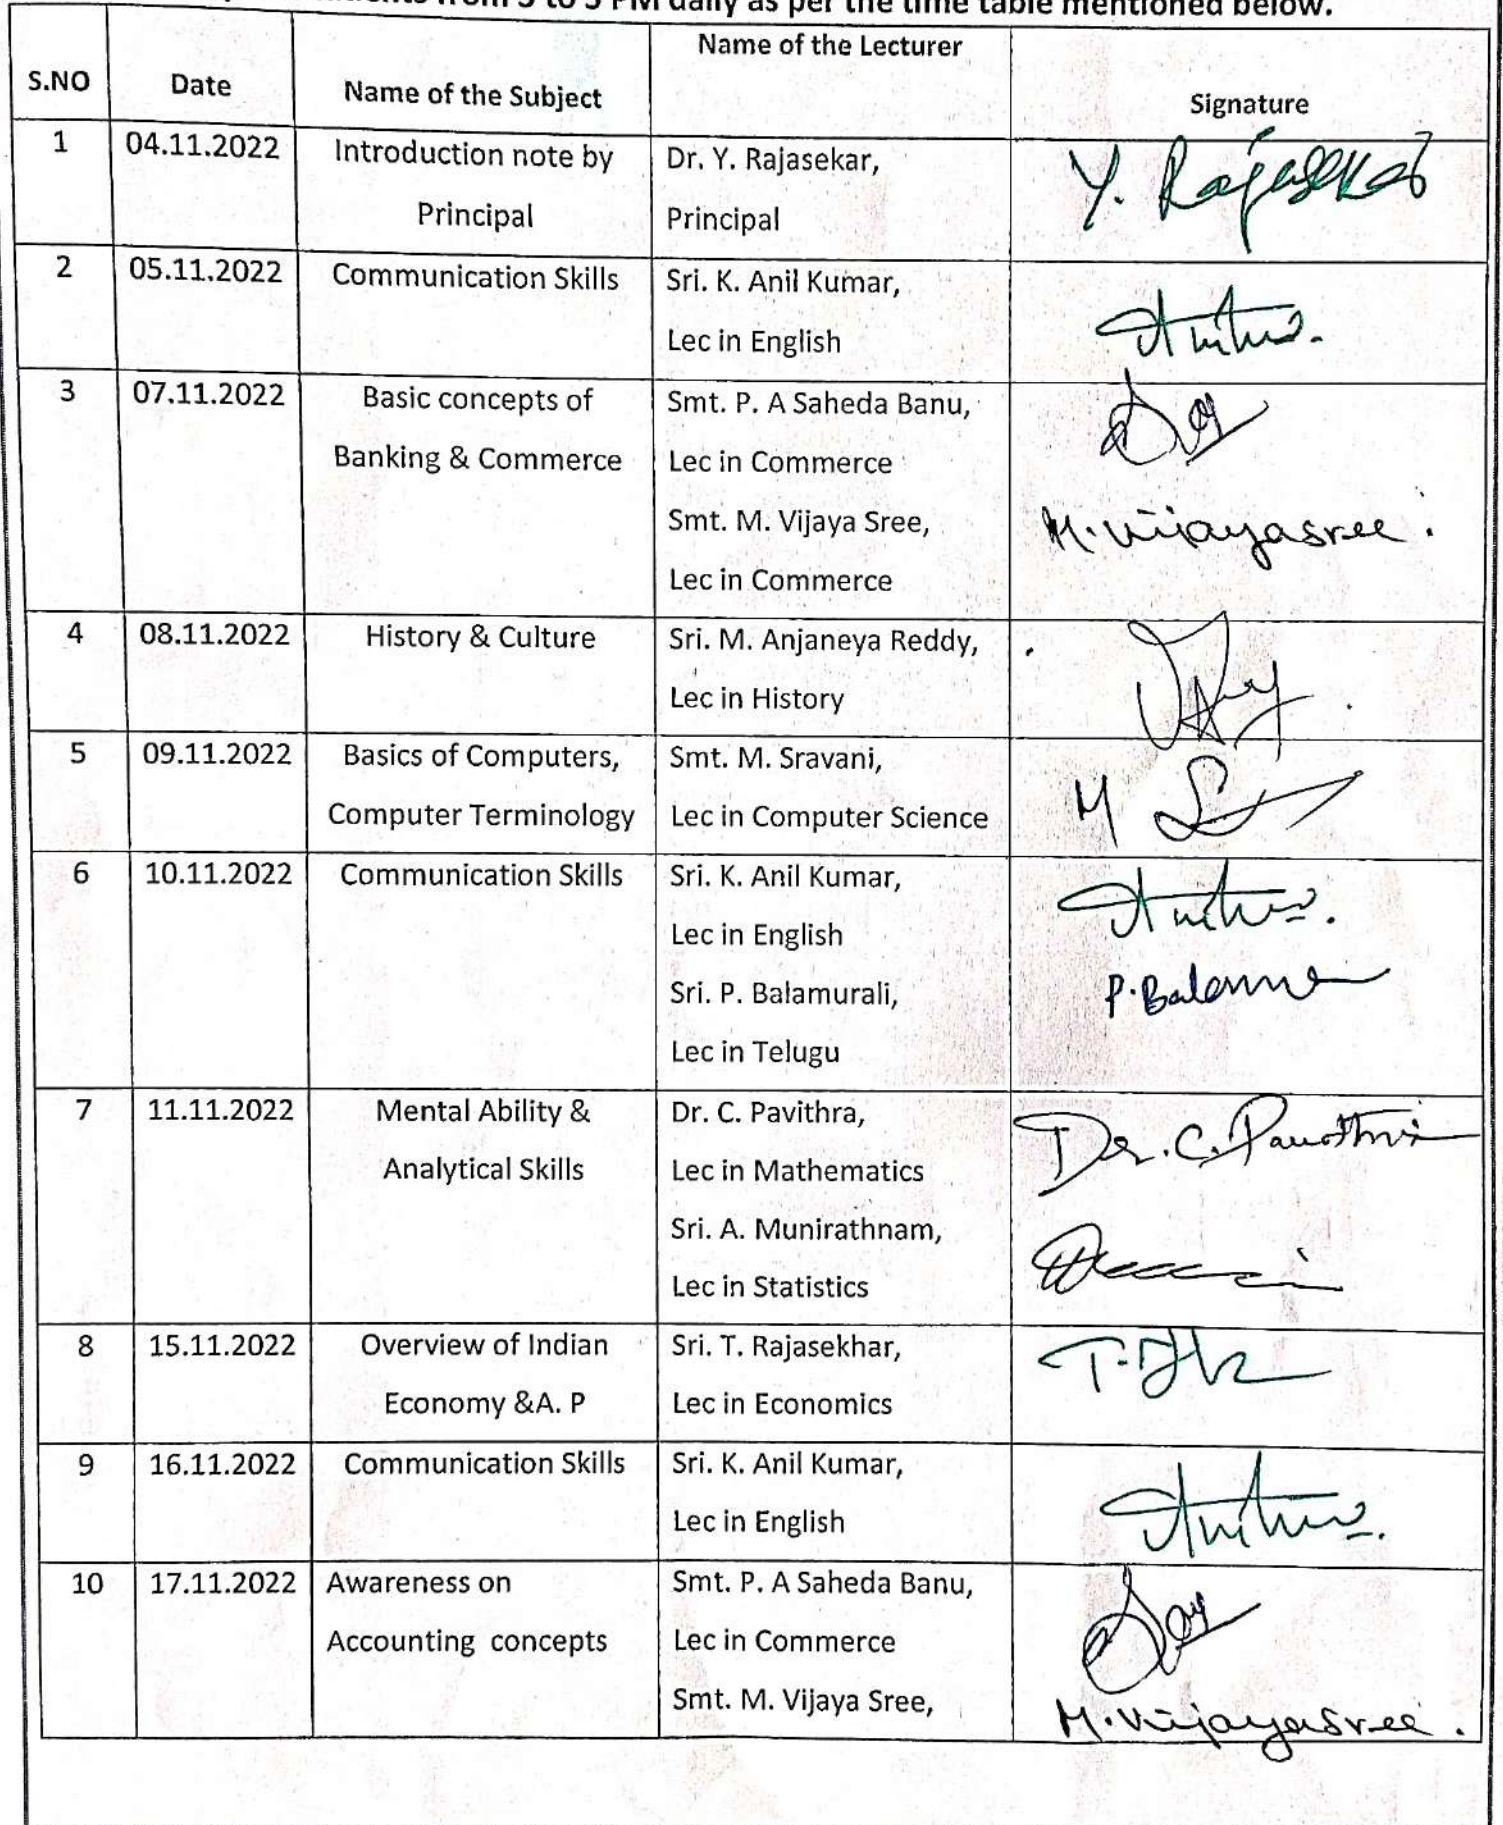 from 3 to 5 PM daily as per the time table mentioned below.
S.NO
Date
Name of the Subject
Name of the Lecturer
Signature
1
04.11.2022
Introduction note by
Principal
Dr. Y. Rajasekar,
Principal
Y. Rajasekar
2
05.11.2022
Communication Skills
Sri. K. Anil Kumar,
Lec in English
3
07.11.2022
Basic concepts of
Banking & Commerce
Smt. P. A Saheda Banu,
Lec in Commerce
Smt. M. Vijaya Sree,
Lec in Commerce
M. Vijayasree.
4
08.11.2022
History & Culture
Sri. M. Anjaneya Reddy,
Lec in History
5
09.11.2022
Basics of Computers,
Computer Terminology
Smt. M. Sravani,
Lec in Computer Science
6
10.11.2022
Communication Skills
Sri. K. Anil Kumar,
Lec in English
Sri. P. Balamurali,
Lec in Telugu
7
11.11.2022
Mental Ability &
Analytical Skills
Dr. C. Pavithra,
Lec in Mathematics
Sri. A. Munirathnam,
Lec in Statistics
Dr. C. Pavithra
8
15.11.2022
Overview of Indian
Economy &A. P
Sri. T. Rajasekhar,
Lec in Economics
9
16.11.2022
Communication Skills
Sri. K. Anil Kumar,
Lec in English
10
17.11.2022
Awareness on
Accounting concepts
Smt. P. A Saheda Banu,
Lec in Commerce
Smt. M. Vijaya Sree,
M. Vijayasree.